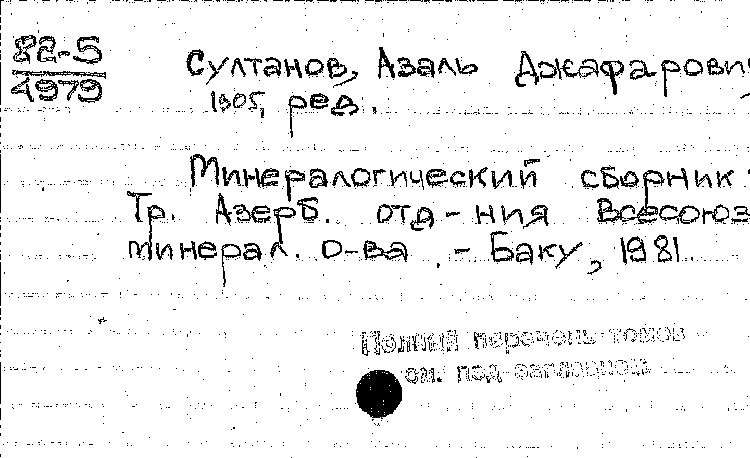 82-5
4979
Султанов, Азаль Джафарови
ред.
Минералогический сборник:
Тр. Азерб. отд-ния Всесоюз
минерал. о-ва. - Баку, 1981.
Полный перечень томов
см. под заглавием